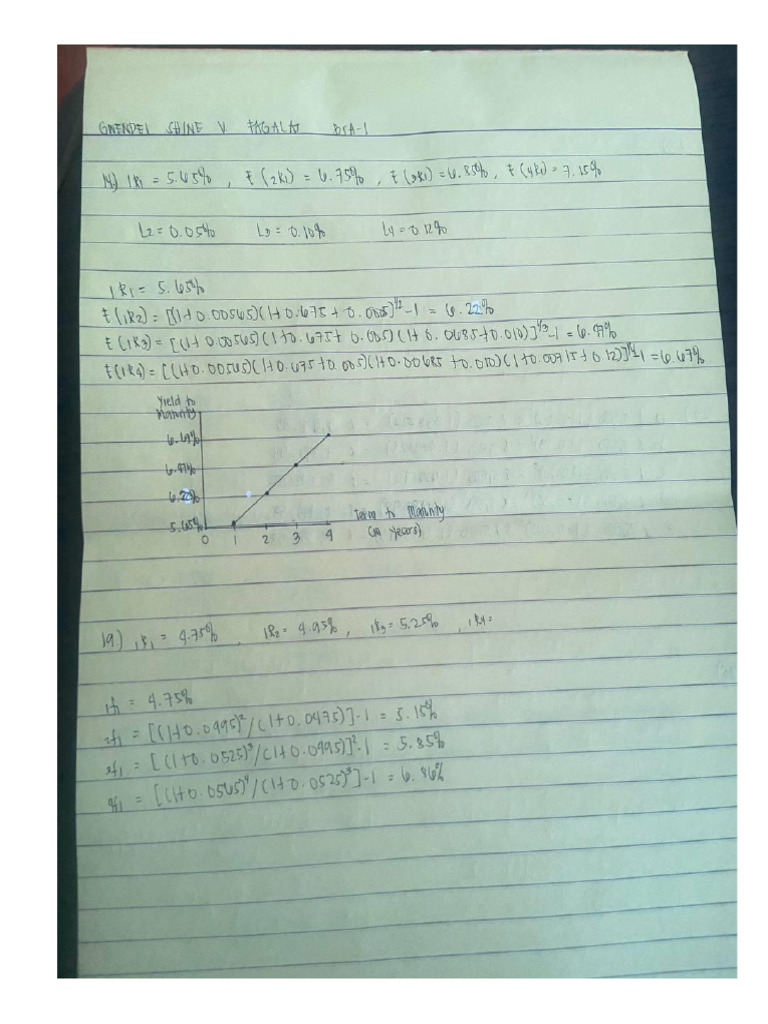 GWENDEL SHINE V PAGALA BSA-1
14) 1R1 = 5.65% , E(2R1) = 6.75% , E(3R1) = 6.85%, E(4R1) = 7.15%
L2 = 0.05% L3 = 0.10% L4 = 0.12%
1R1 = 5.65%
E(1R2) = [(1+0.00565)(1+0.675+0.005)^1/2 -1 = 6.22%
E(1R3) = [(1+0.00565)(1+0.675+0.005)(1+0.0685+0.010)]^1/3-1 = 6.47%
E(1R4) = [(1+0.00565)(1+0.675+0.005)(1+0.00685+0.010)(1+0.00715+0.12)]^1/4-1 = 6.67%
Yield to
Maturity
6.69%
6.47%
6.22%
5.65%
0 1 2 3 4
Term to Maturity
(in years)
19) 1R1 = 4.75% , 1R2 = 4.95% , 1R3 = 5.25% , 1R4=
1f1 = 4.75%
2f1 = [(1+0.0495)²/(1+0.0475)]-1 = 5.15%
3f1 = [(1+0.0525)³/(1+0.0495)]²-1 = 5.85%
4f1 = [(1+0.0565)⁴/(1+0.0525)³]-1 = 6.86%